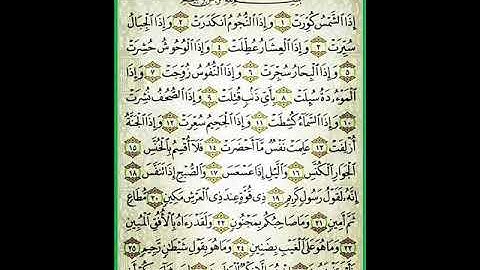 إِذَا ٱلشَّمْسُ كُوِّرَتْ ١ وَإِذَا ٱلنُّجُومُ ٱنكَدَرَتْ ٢ وَإِذَا ٱلْجِبَالُ
سُيِّرَتْ ٣ وَإِذَا ٱلْعِشَارُ عُطِّلَتْ ٤ وَإِذَا ٱلْوُحُوشُ حُشِرَتْ
٥ وَإِذَا ٱلْبِحَارُ سُجِّرَتْ ٦ وَإِذَا ٱلنُّفُوسُ زُوِّجَتْ ٧ وَإِذَا
ٱلْمَوْءُۥدَةُ سُئِلَتْ ٨ بِأَىِّ ذَنۢبٍ قُتِلَتْ ٩ وَإِذَا ٱلصُّحُفُ نُشِرَتْ
١٠ وَإِذَا ٱلسَّمَآءُ كُشِطَتْ ١١ وَإِذَا ٱلْجَحِيمُ سُعِّرَتْ ١٢ وَإِذَا ٱلْجَنَّةُ
أُزْلِفَتْ ١٣ عَلِمَتْ نَفْسٌ مَّآ أَحْضَرَتْ ١٤ فَلَآ أُقْسِمُ بِٱلْخُنَّسِ ١٥
ٱلْجَوَارِ ٱلْكُنَّسِ ١٦ وَٱلَّيْلِ إِذَا عَسْعَسَ ١٧ وَٱلصُّبْحِ إِذَا تَنَفَّسَ ١٨
إِنَّهُۥ لَقَوْلُ رَسُولٍ كَرِيمٍ ١٩ ذِى قُوَّةٍ عِندَ ذِى ٱلْعَرْشِ مَكِينٍ ٢٠ مُّطَاعٍ
ثَمَّ أَمِينٍ ٢١ وَمَا صَاحِبُكُم بِمَجْنُونٍ ٢٢ وَلَقَدْ رَءَاهُ بِٱلْأُفُقِ ٱلْمُبِينِ
٢٣ وَمَا هُوَ عَلَى ٱلْغَيْبِ بِضَنِينٍ ٢٤ وَمَا هُوَ بِقَوْلِ شَيْطَٰنٍ رَّجِيمٍ ٢٥